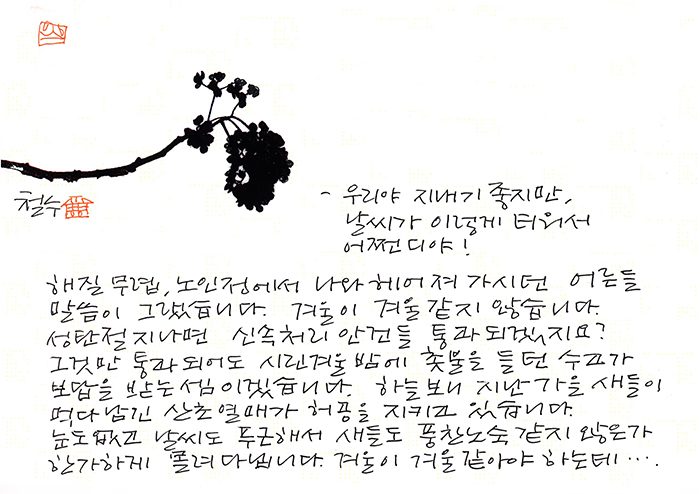 철수
- 우리야 지내기 좋지만,
날씨가 이렇게 더워서
어쩐디야!
해질 무렵, 노인정에서 나와 헤어져 가시던 어른들
말씀이 그랬습니다. 겨울이 겨울 같지 않습니다.
성탄절 지나면 신속처리 안건들 통과되겠지요?
그것만 통과되어도 시린겨울밤에 촛불을 들던 수고가
보답을 받는 셈이겠습니다. 하늘보니 지난가을 새들이
먹다 남긴 산초열매가 허공을 지키고 있습니다.
눈도없고 날씨도 푸근해서 새들도 풍찬노숙 같지 않은가
한가하게 몰려다닙니다. 겨울이 겨울 같아야 하는데….